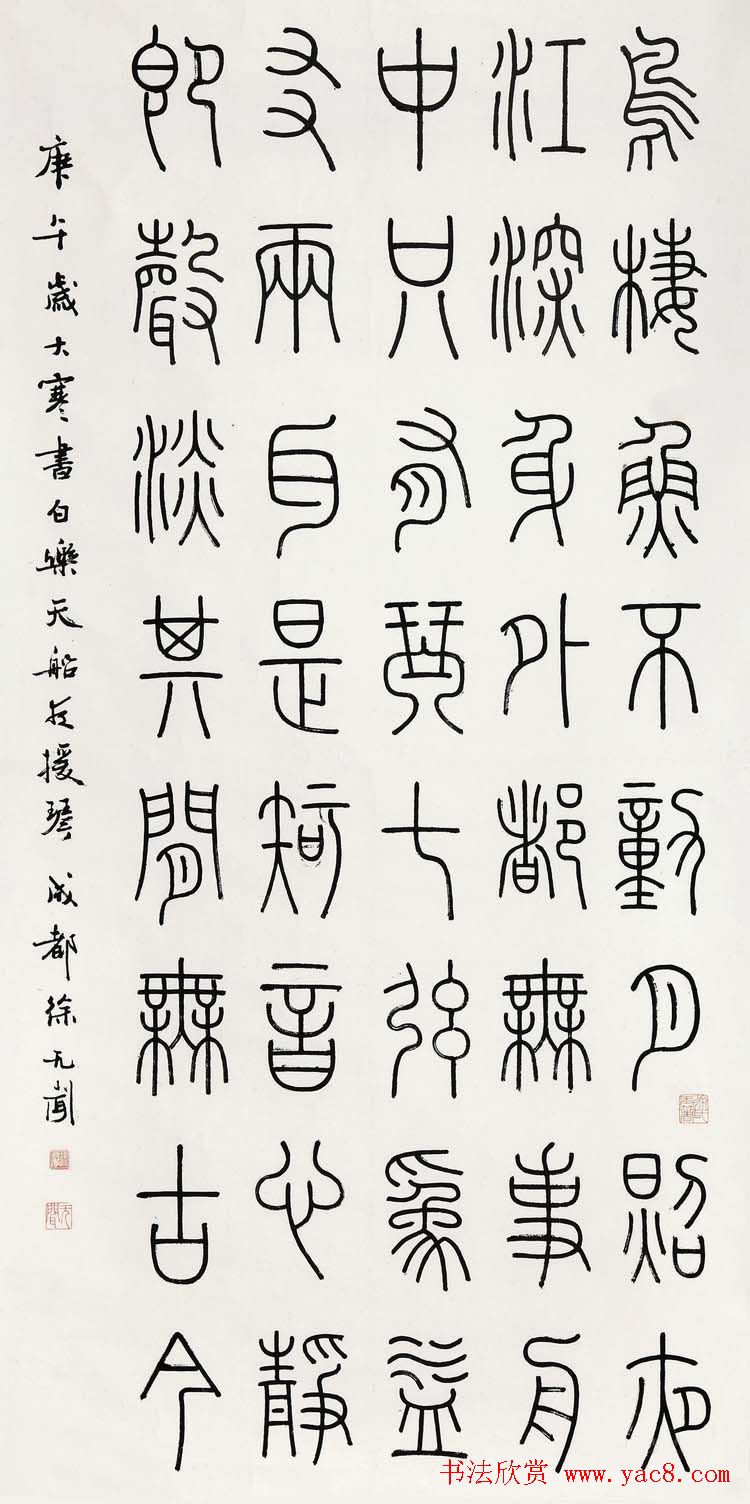 鳥棲魚不動月照夜
江深身外都無事舟
中只有琴七弦為益
友兩耳是知音心靜
即聲淡其間無古今
庚午歲大寒書白樂天船夜援琴 成都徐无聞
书法欣赏 www.yac8.com